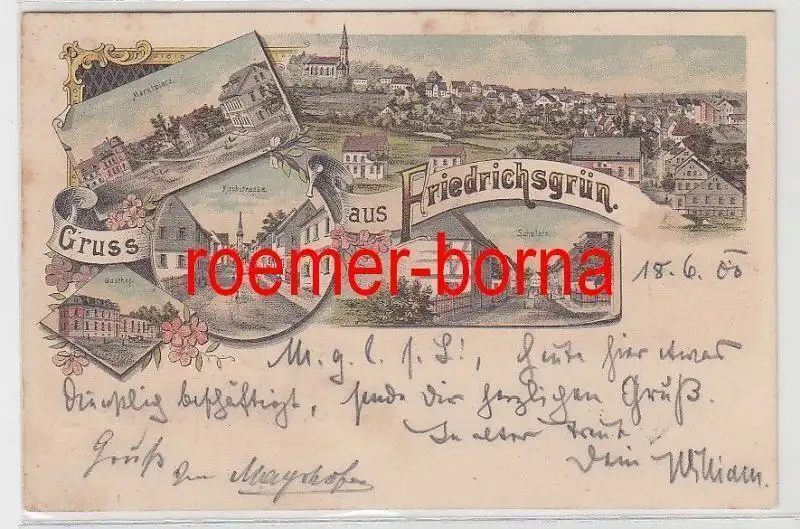 Marktplatz.
Kirchstrasse.
Gruss aus Friedrichsgrün.
Gasthof.
roemer-borna
18.6.00
M. g. l. s. L!, heute hier etwas
dienstlich beschäftigt, sende dir herzlichen Gruß.
In alter Treue
Dein William.
Gruß